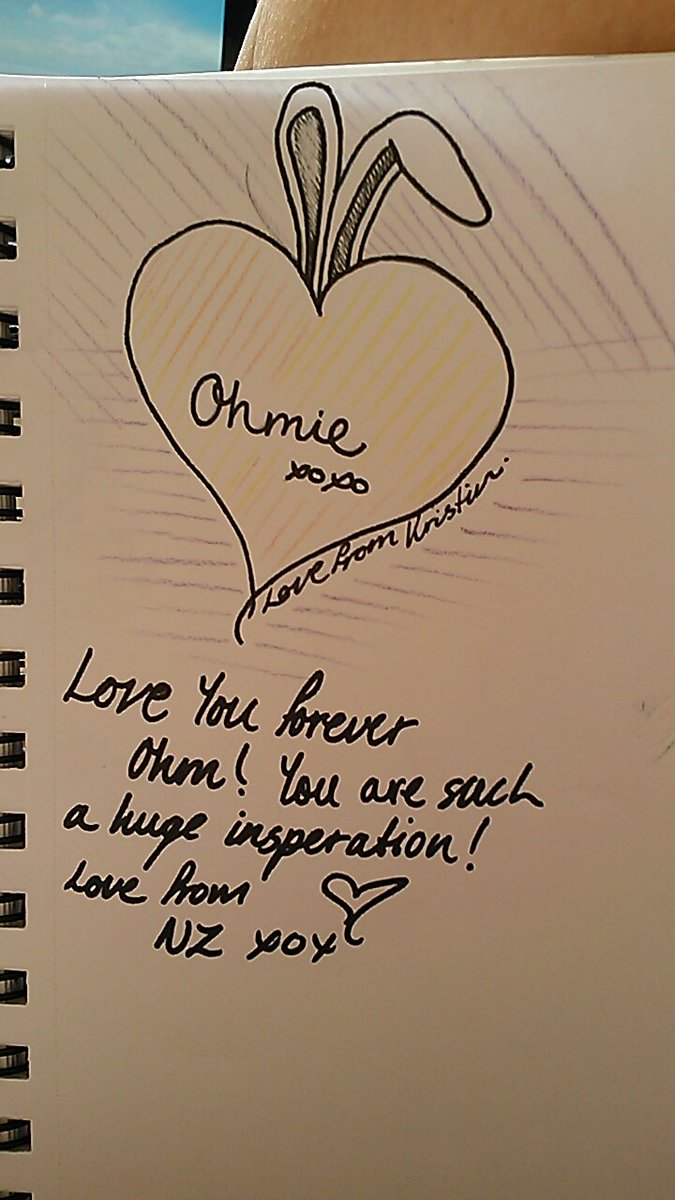 Ohmie
xoxo
Love from Kristien.
Love You forever
Ohm! You are such
a huge insperation!
Love from
NZ xox